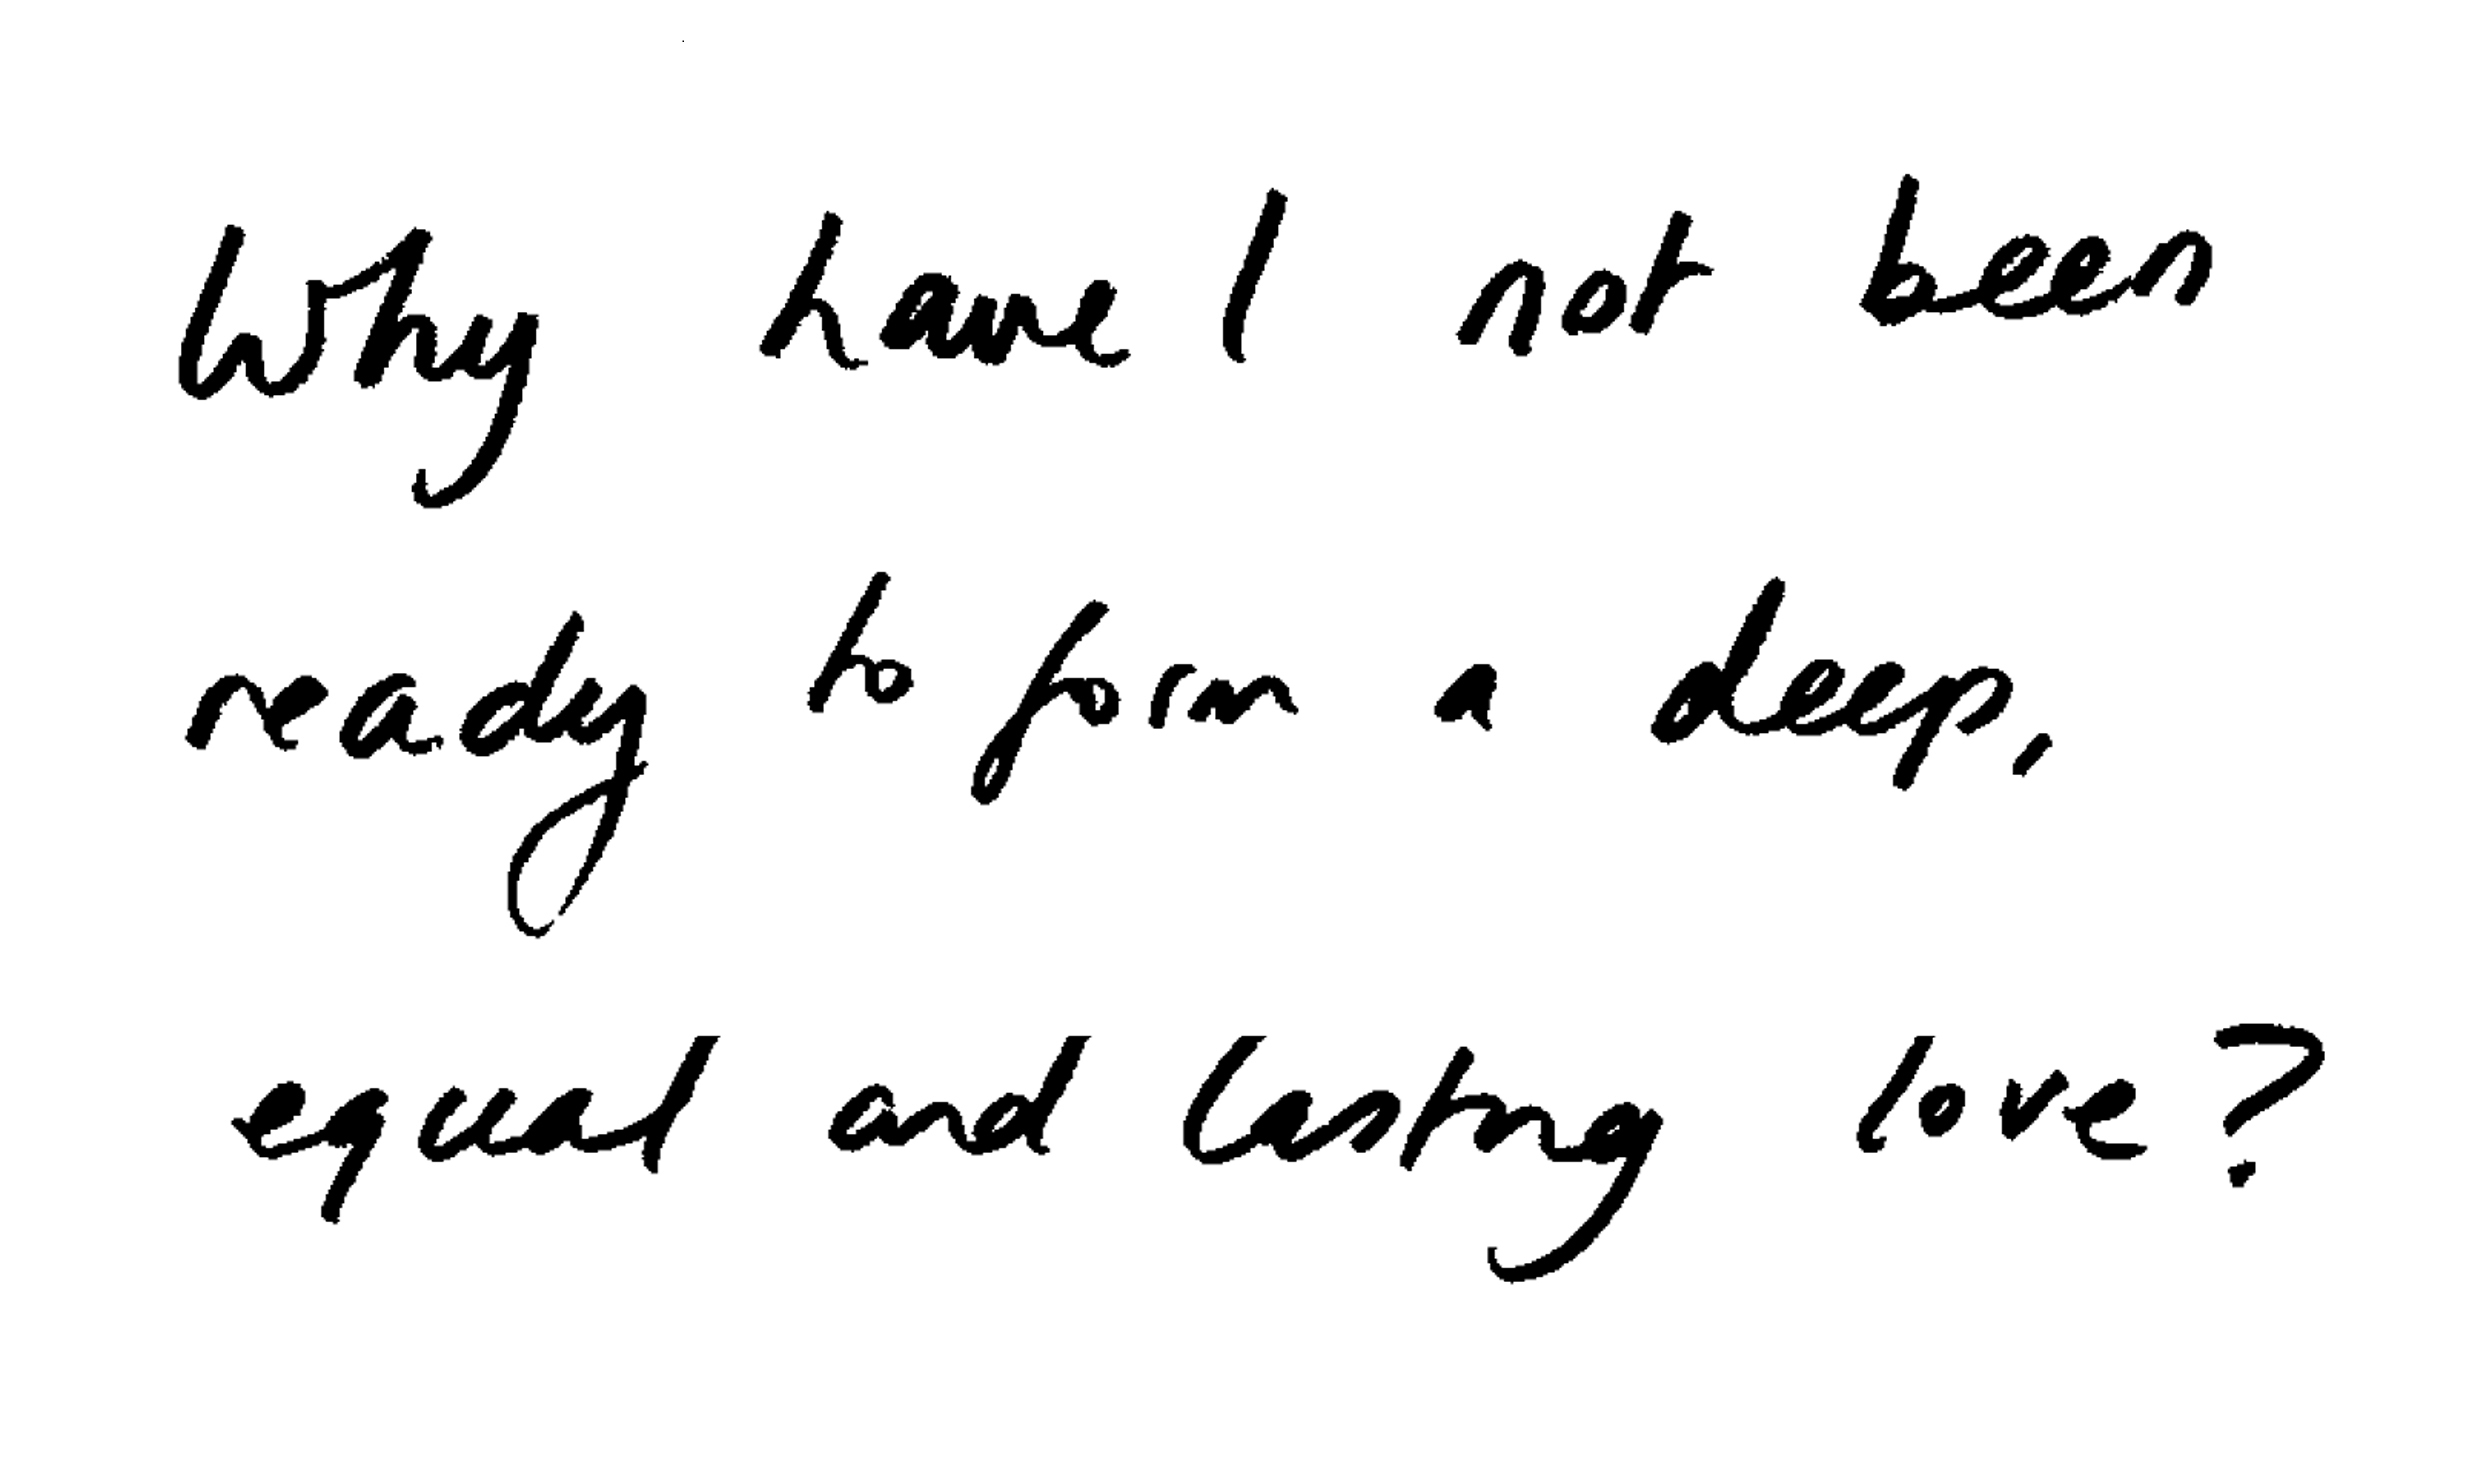 Why have I not been
ready to form a deep,
equal and lasting love?